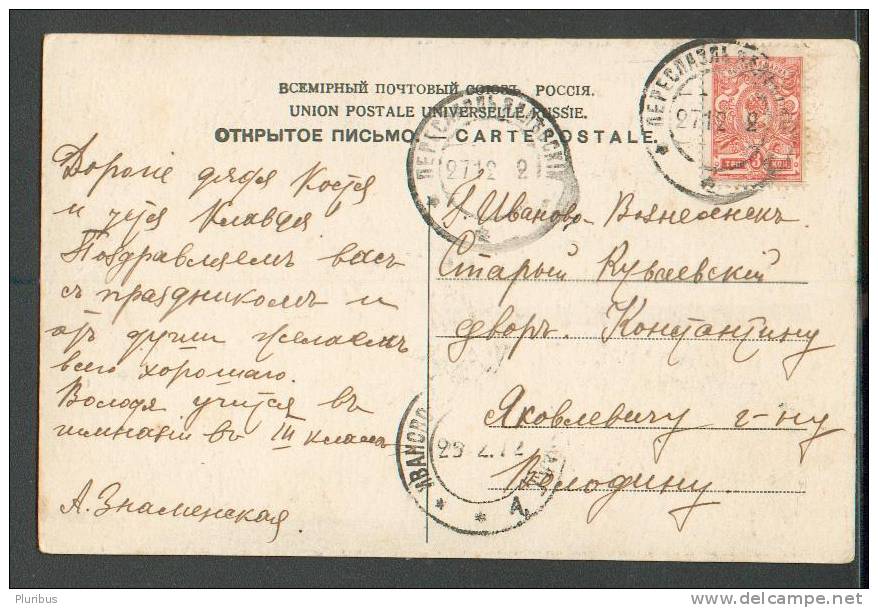 ВСЕМІРНЫЙ ПОЧТОВЫЙ СОЮЗЪ. РОССІЯ.
UNION POSTALE UNIVERSELLE RUSSIE.
ОТКРЫТОЕ ПИСЬМО — CARTE POSTALE.
Дорогіе дядя Костя
и тетя Клавдія
Поздравляемъ васъ
съ праздникомъ и
отъ души желаемъ
всего хорошаго.
Володя учится въ
гимназіи въ III классѣ
А. Знаменская
Г. Иваново-Вознесенскъ
Старый Куваевскій
дворъ. Константину
Яковлевичу г-ну
Володину.
ПЕРЕСЛАВЛЬ ЗАЛѢССКІЙ
27 12 2
ПЕРЕСЛАВЛЬ
27 12 2
ТРИ 3 КОП
ИВАНОВО
Pluribus
http://www.delcampe.net